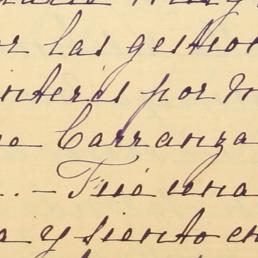 las gestion
interés por m
Carranza
. - Fué una
a y siento en